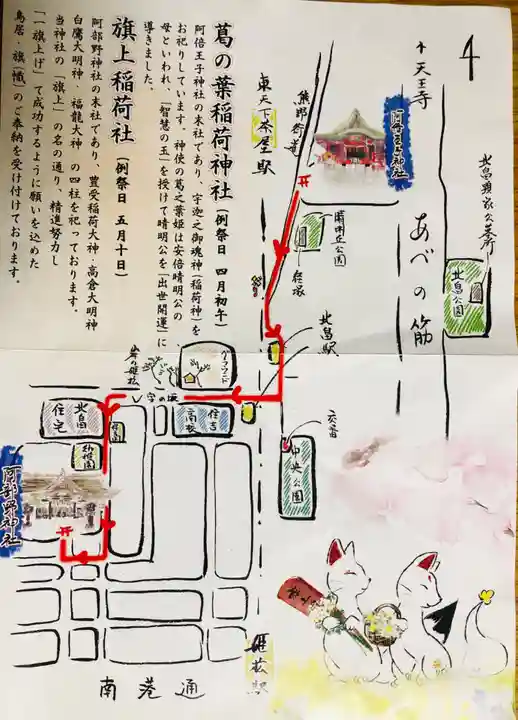 葛の葉稲荷神社（例祭日　四月初午）
阿倍王子神社の末社であり、宇迦之御魂神（稲荷神）を
お祀りしています。神使の葛之葉姫は安倍晴明公の
母といわれ、「智慧の玉」を授けて晴明公を「出世開運」に
導きました。
旗上稲荷社（例祭日　五月十日）
阿部野神社の末社であり、豊受稲荷大神・高倉大明神
白鷹大明神・福龍大神の四柱を祀っております。
当神社の「旗上」の名の通り、精進努力し
「一旗上げ」て成功するように願いを込めた
鳥居・旗（幟）のご奉納を受け付けております。
↑天王寺
熊野街道
東天下茶屋駅
阿倍王子神社
北畠顕家公墓所
北畠公園
あべの筋
経塚
北畠駅
グラウンド
岸の姫松
V字の坂
北畠
住宅
幼稚園
公園
住吉
高校
交番
中央公園
阿部野神社
姫松駅
南港通